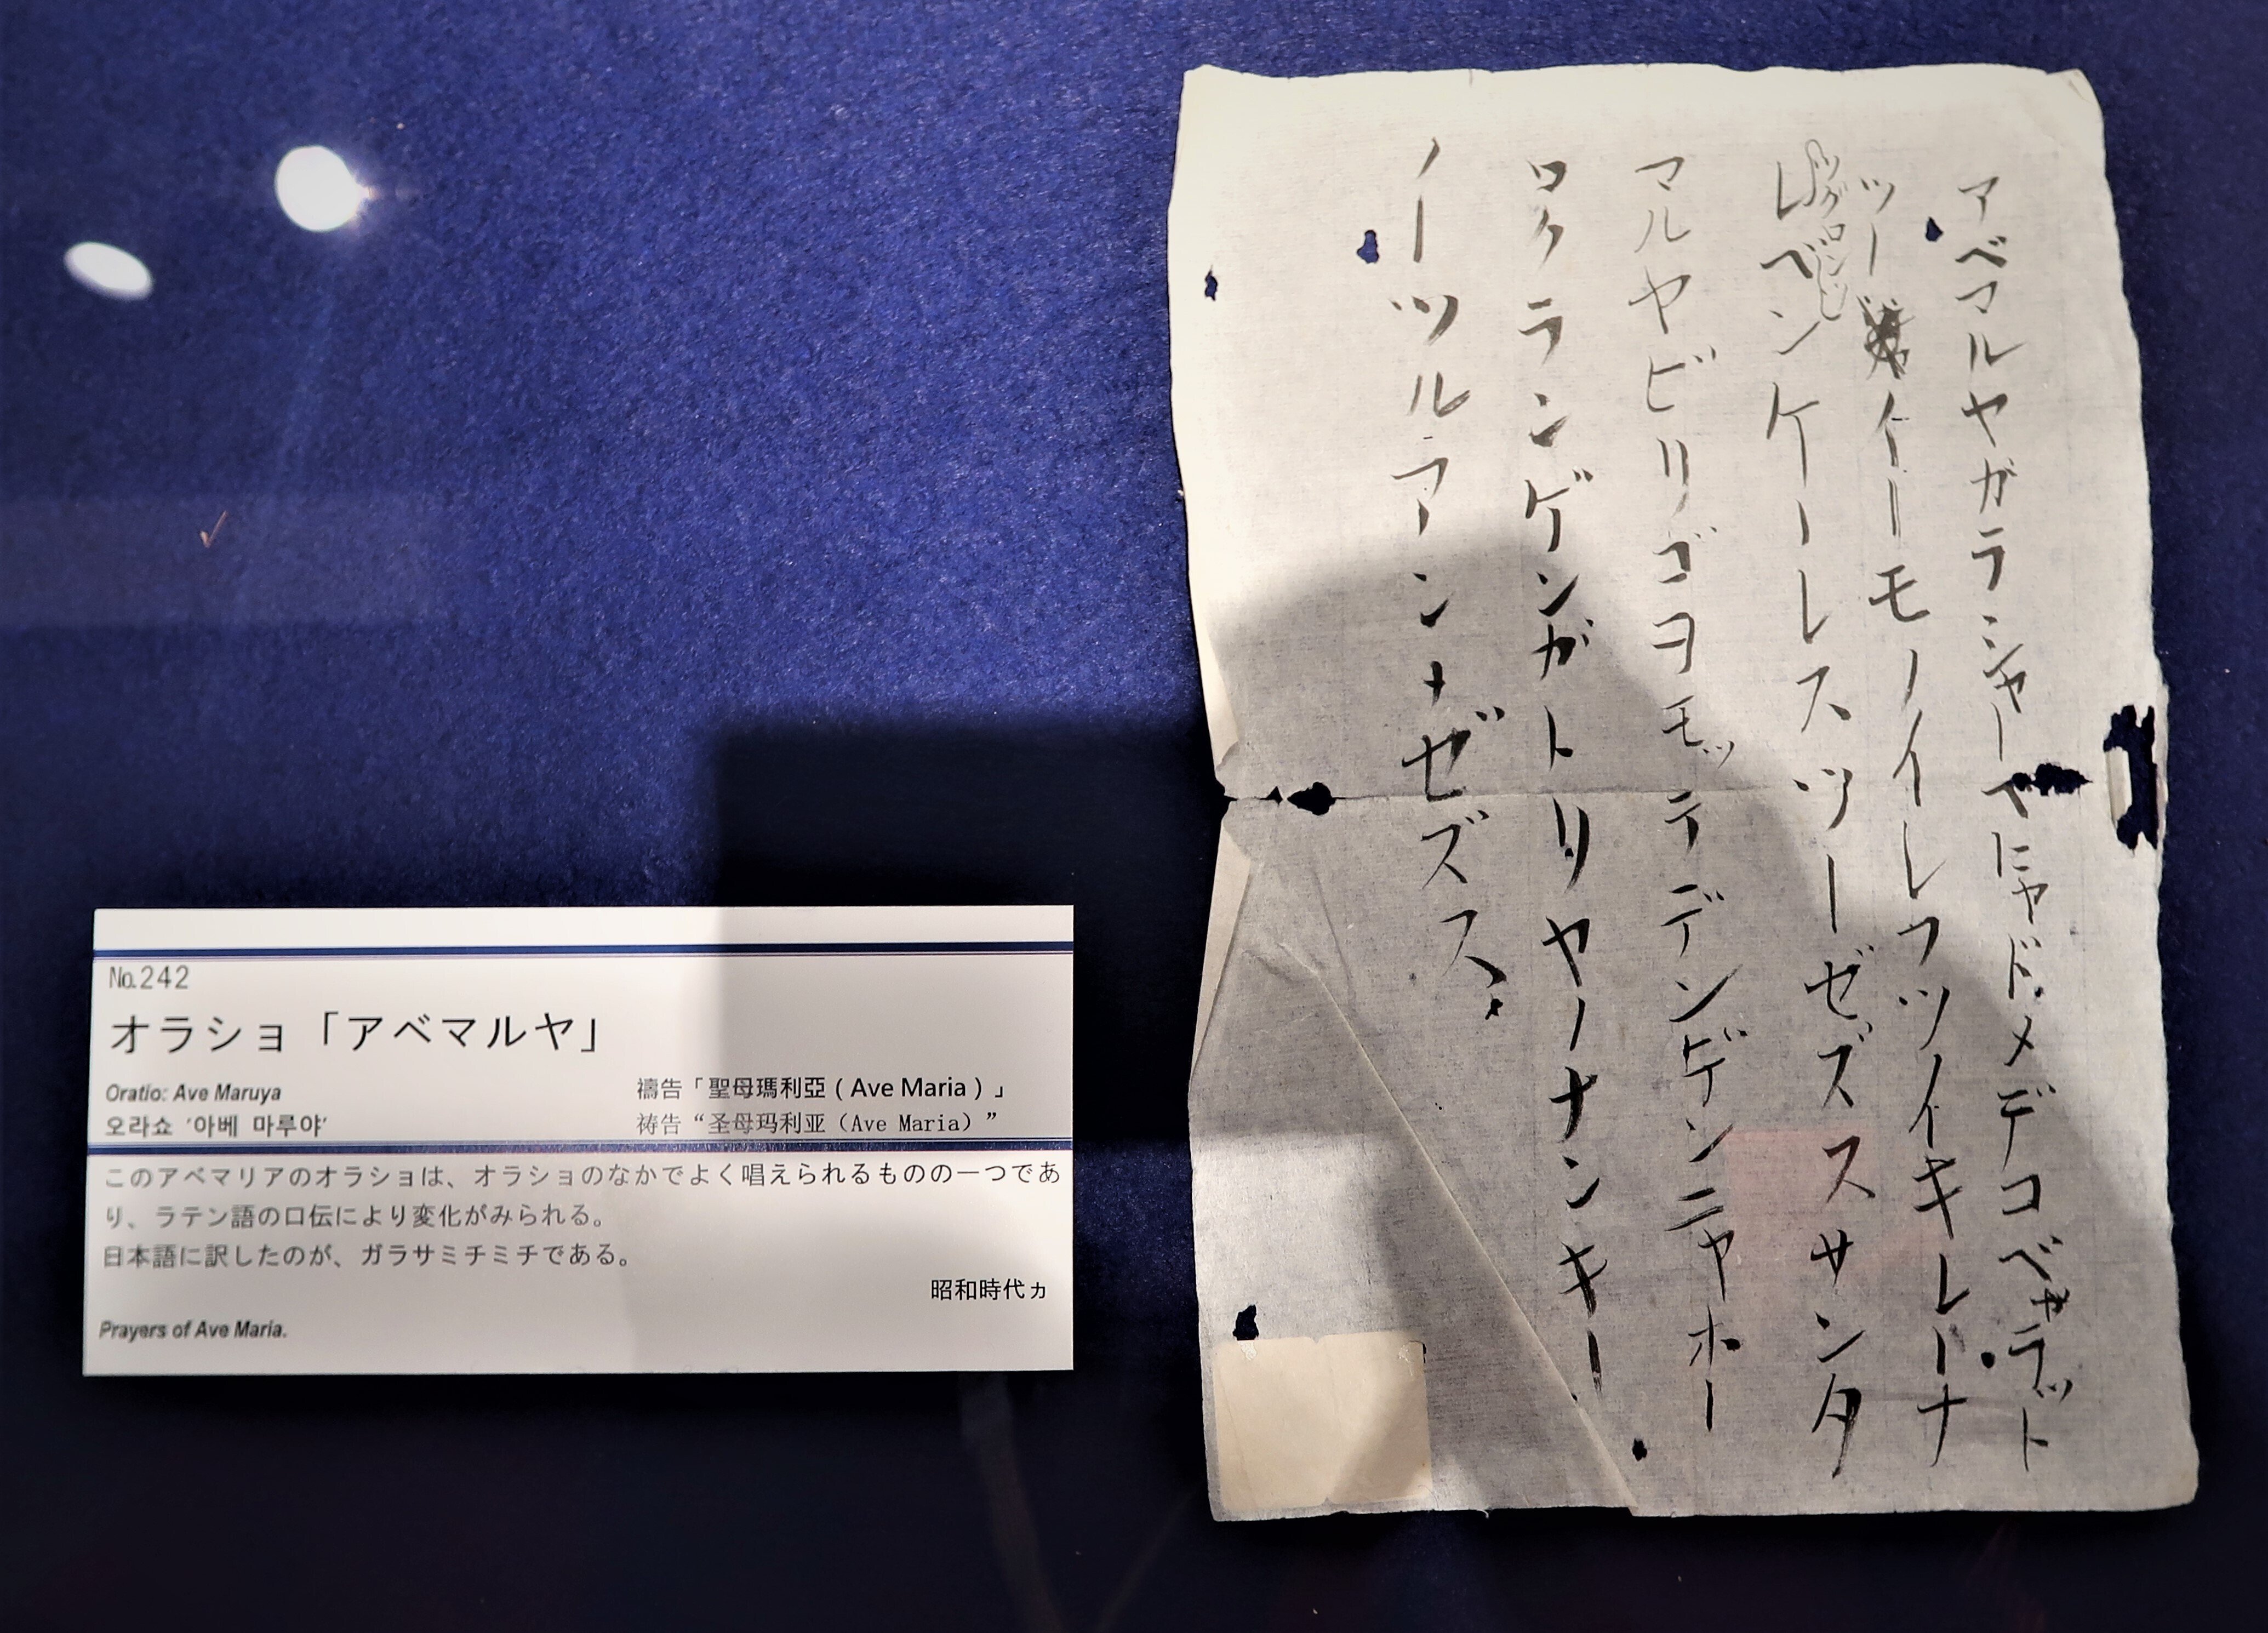 No.242
オラショ「アベマルヤ」
Oratio: Ave Maruya
오라쇼 '아베 마루야'
禱告「聖母瑪利亞（Ave Maria）」
祷告“圣母玛利亚（Ave Maria）”
このアベマリアのオラショは、オラショのなかでよく唱えられるものの一つであ
り、ラテン語の口伝により変化がみられる。
日本語に訳したのが、ガラサミチミチである。
昭和時代ヵ
Prayers of Ave Maria.
アベマルヤガラシャーべニャドメデコベャラット
ツーイーモノイレフツイキレーナ
ベンケーレスツーゼズスサンタ
マルヤビリゴヨモッテデンゲンニャホー
ロクランゲンガトリヤーナンキー
ノーツルアーンナゼズス